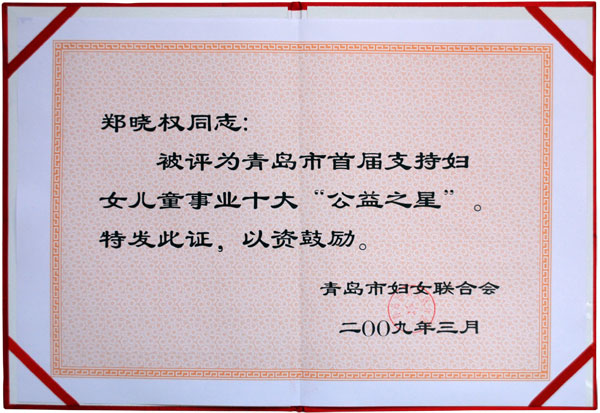 郑晓权同志：
被评为青岛市首届支持妇
女儿童事业十大“公益之星”。
特发此证，以资鼓励。
青岛市妇女联合会
二〇〇九年三月